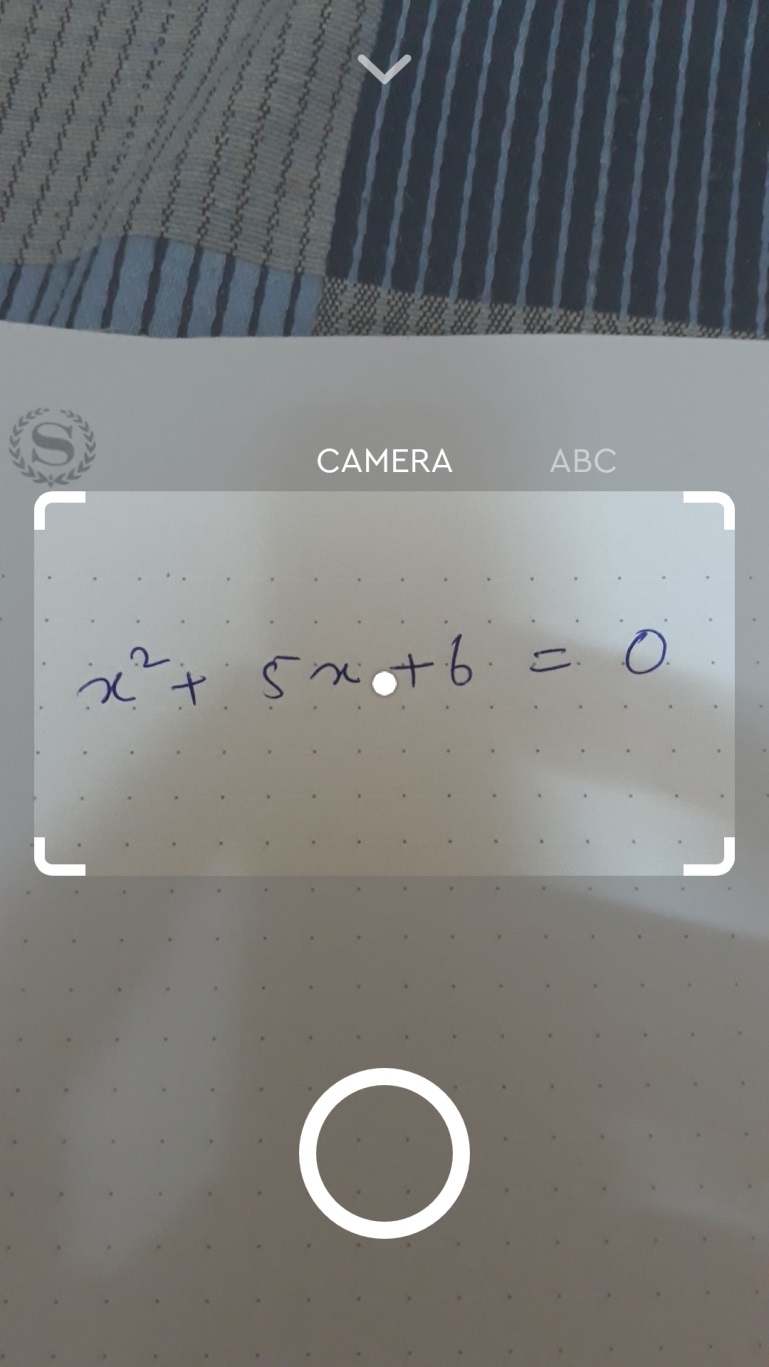 S
CAMERA ABC
x²+ 5x+6 = 0